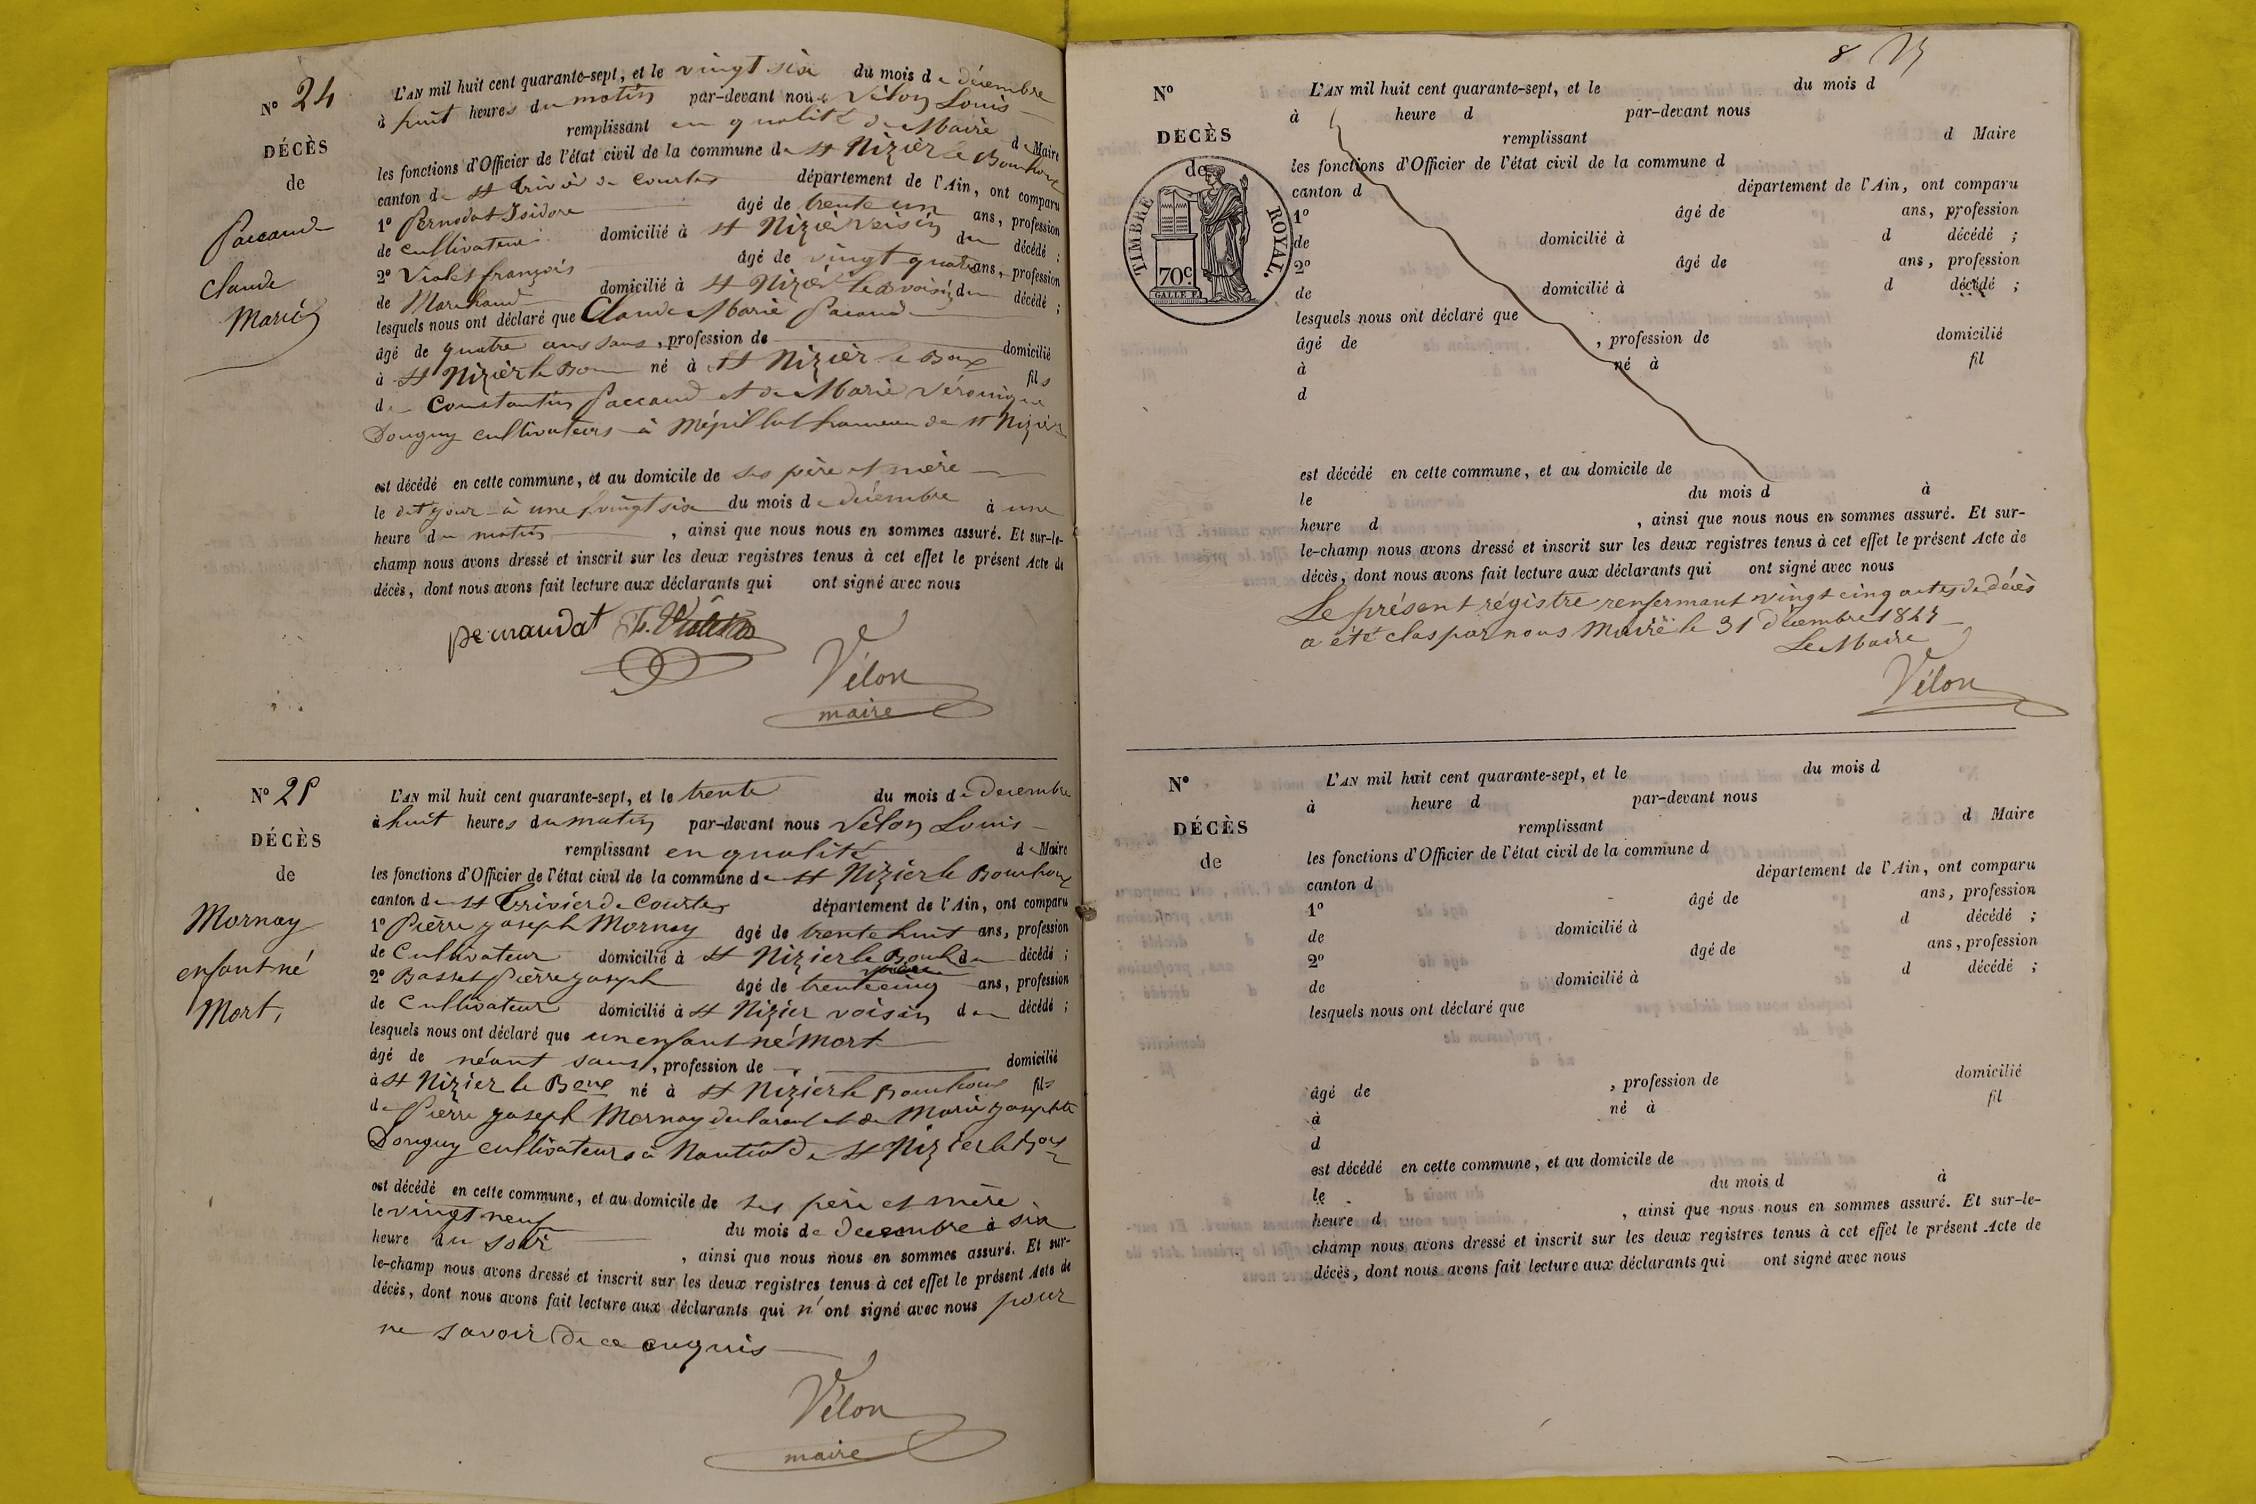 N° 24
DÉCÈS
de
Paccaud
Claude
Marie
L'AN mil huit cent quarante-sept, et le vingt six du mois de décembre
à huit heures du matin par-devant nous Vélon Louis
remplissant en qualité de Maire d Maire
les fonctions d'Officier de l'état civil de la commune de St Nizier le Bouchoux
canton de St Trivier de Courtes département de l'Ain, ont comparu
1° Pernodat Isidore âgé de trente un ans, profession
de cultivateur domicilié à St Nizier voisin du décédé ;
2° Violet françois âgé de vingt quatre ans, profession
de Marchand domicilié à St Nizier voisin du décédé ;
lesquels nous ont déclaré que Claude Marie Pacaud
âgé de quatre ans sans, profession de domicilié
à St Nizier le Bou né à St Nizier le Boux fils
de Constantin Paccaud et de Marie Véronique
Donguy cultivateurs à Mépillat hameau de St Nizier
est décédé en cette commune, et au domicile de ses père et mère
le dit jour à une vingt six du mois de décembre à une
heure du matin, ainsi que nous nous en sommes assuré. Et sur-le-
champ nous avons dressé et inscrit sur les deux registres tenus à cet effet le présent Acte de
décès, dont nous avons fait lecture aux déclarants qui ont signé avec nous
pernaudat F. Violet
Vélon
maire
N° 25
DÉCÈS
de
Mornay
enfant né
Mort,
L'AN mil huit cent quarante-sept, et le trente du mois de Decembre
à huit heures du matin par-devant nous Vélon Louis
remplissant en qualité de Maire
les fonctions d'Officier de l'état civil de la commune de St Nizier le Bouchoux
canton de St Trivier de Courtes département de l'Ain, ont comparu
1° Pierre Joseph Mornay âgé de trente huit ans, profession
de Cultivateur domicilié à St Nizier le Bouh du décédé ;
2° Basset Pierre Joseph âgé de trente cinq ans, profession
de Cultivateur domicilié à St Nizier voisin du décédé ;
lesquels nous ont déclaré que un enfant né Mort
âgé de néant sans, profession de domicilié
à St Nizier le Boux né à St Nizier le Bouchoux fils
de Pierre Joseph Mornay declarant et de Marie Josephte
Donguy cultivateurs à de St Nizier le Boux
est décédé en cette commune, et au domicile de ses père et mère
le vingt neuf du mois de decembre à six
heure du soir, ainsi que nous nous en sommes assuré. Et sur-
le-champ nous avons dressé et inscrit sur les deux registres tenus à cet effet le présent Acte de
décès, dont nous avons fait lecture aux déclarants qui n'ont signé avec nous pour
ne savoir de ce enquis
Vélon
maire
8
N°
DÉCÈS
de
TIMBRE ROYAL.
70c
L'AN mil huit cent quarante-sept, et le du mois d
à heure d par-devant nous
remplissant d Maire
les fonctions d'Officier de l'état civil de la commune d
canton d département de l'Ain, ont comparu
1° âgé de ans, profession
de domicilié à d décédé ;
2° âgé de ans, profession
de domicilié à d décédé ;
lesquels nous ont déclaré que
âgé de , profession de domicilié
à né à fil
d
est décédé en cette commune, et au domicile de
le du mois d à
heure d , ainsi que nous nous en sommes assuré. Et sur-
le-champ nous avons dressé et inscrit sur les deux registres tenus à cet effet le présent Acte de
décès, dont nous avons fait lecture aux déclarants qui ont signé avec nous
Le présent régistre renfermant vingt cinq actes de décès
a été clos par nous Maire le 31 décembre 1847
Le Maire
Vélon
N°
DÉCÈS
de
L'AN mil huit cent quarante-sept, et le du mois d
à heure d par-devant nous
remplissant d Maire
les fonctions d'Officier de l'état civil de la commune d
canton d département de l'Ain, ont comparu
1° âgé de ans, profession
de domicilié à d décédé ;
2° âgé de ans, profession
de domicilié à d décédé ;
lesquels nous ont déclaré que
âgé de , profession de domicilié
à né à fil
d
est décédé en cette commune, et au domicile de
le du mois d à
heure d , ainsi que nous nous en sommes assuré. Et sur-le-
champ nous avons dressé et inscrit sur les deux registres tenus à cet effet le présent Acte de
décès, dont nous avons fait lecture aux déclarants qui ont signé avec nous